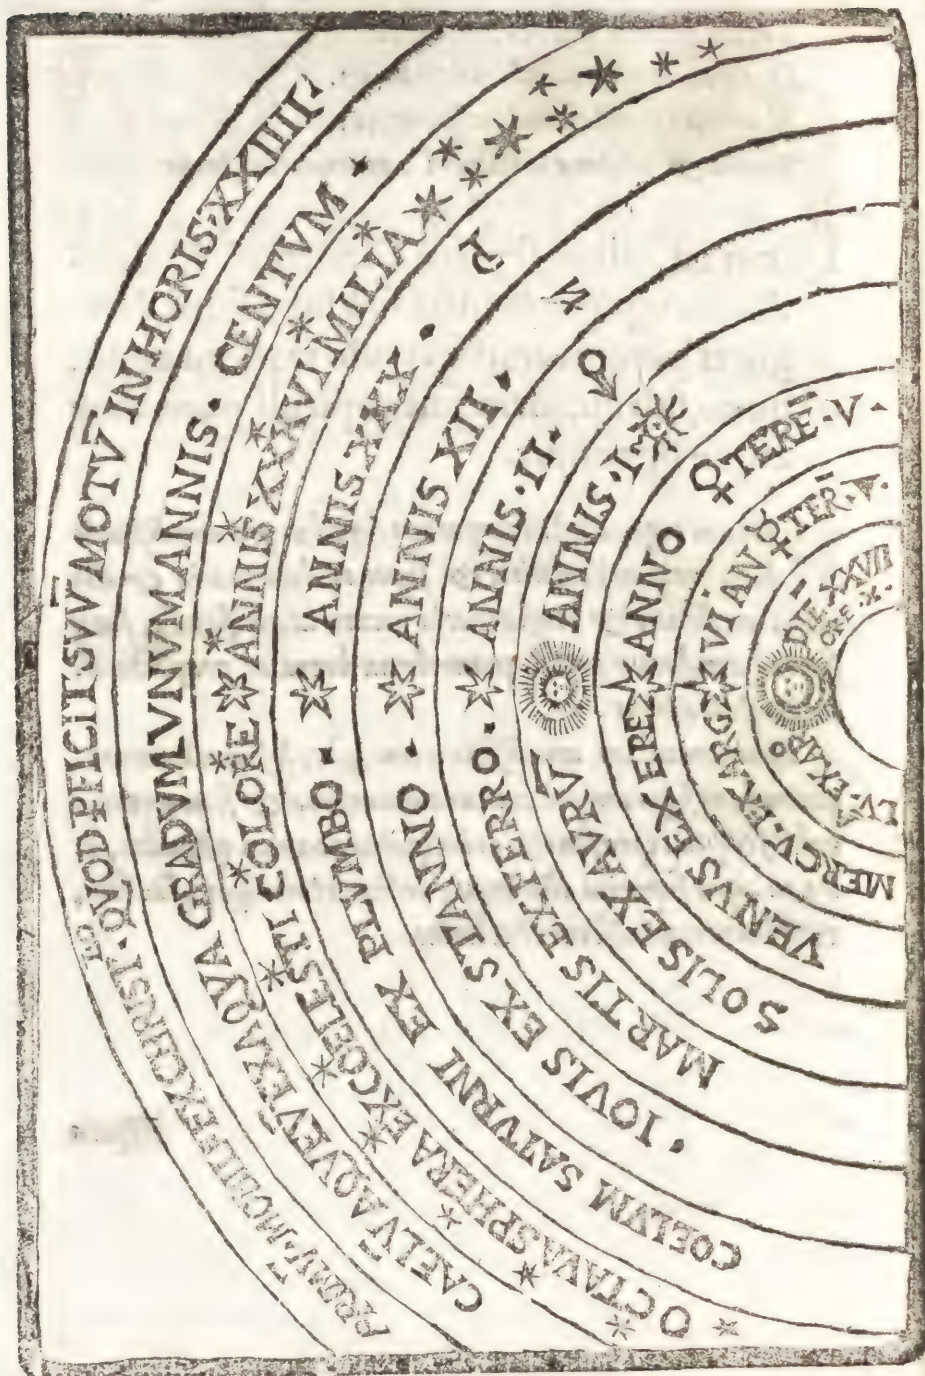 PRIMV̄·MOBILE EX CHRIST·LO· QVOD PFICIT SVV̄ MOTV̄ IN HORIS·XXIIII·
CAELV̄ AQVEV̄ EX AQVA GRADVM VNVM ANNIS· CENTVM·
OCTAVA SPHERA EX COELESTI COLORE ANNIS XXXVI MILIA
COELVM SATVRNI EX PLVMBO· ANNIS XXX·
IOVIS EX STANNO· ANNIS XII·
MARTIS EX FERRO· ANNIS·II·
SOLIS EX AVRV̄ ANNIS·I·
VENVS EX ERE ANNO ♀ TERĒ·V·
MERCV·EX ARG VI AN ☿ TER̄·V̄·
LV·EX AR DIE XXVII
ORE·X·